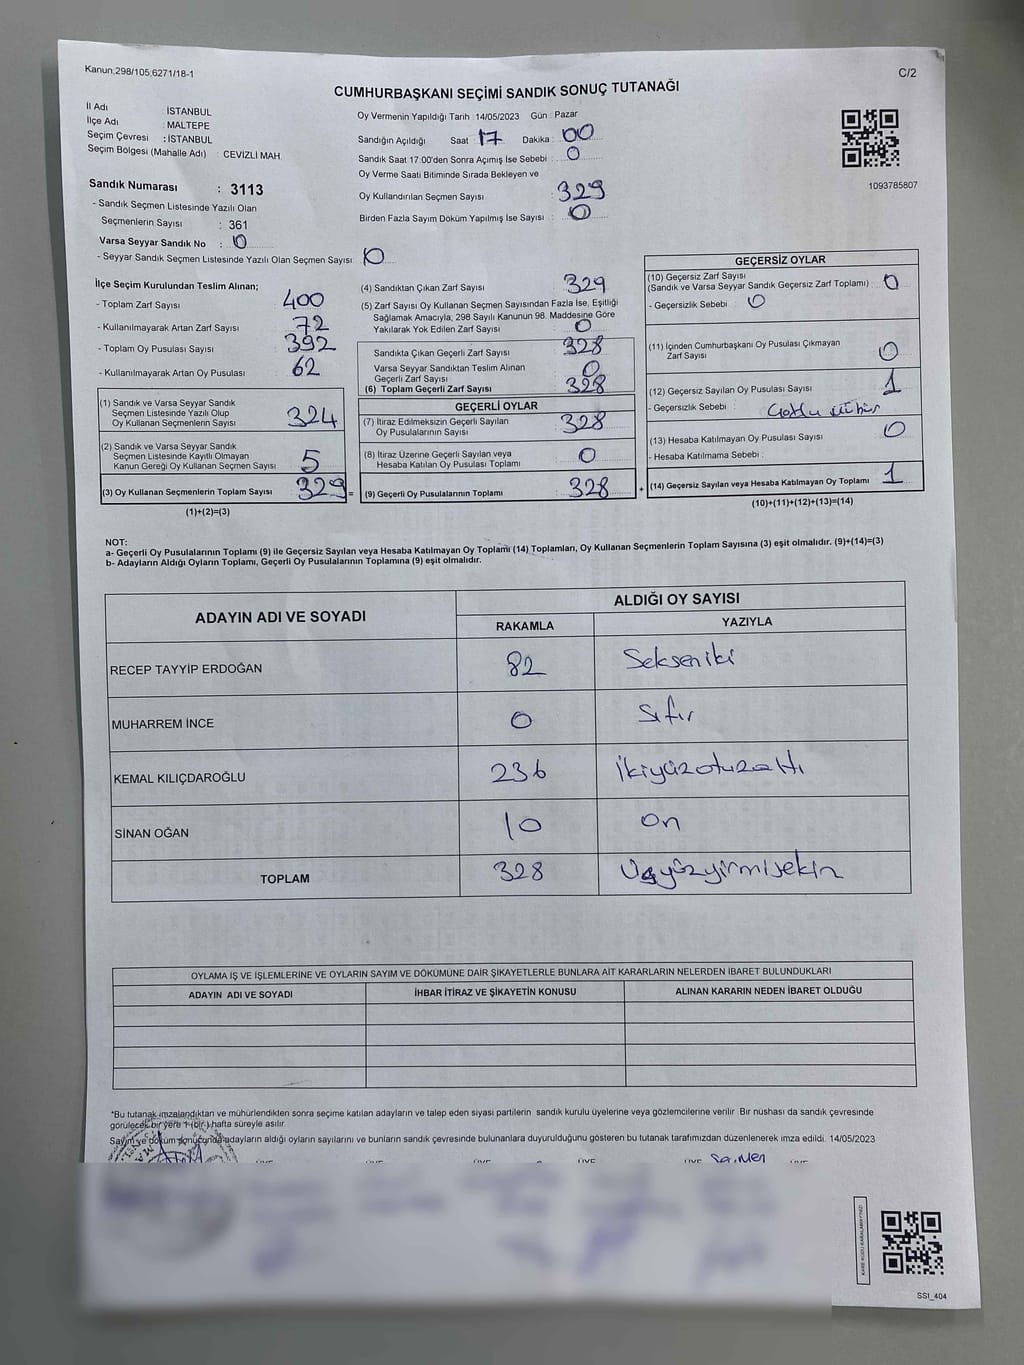 Kanun,298/105;6271/18-1
C/2
CUMHURBAŞKANI SEÇİMİ SANDIK SONUÇ TUTANAĞI
İl Adı : İSTANBUL
İlçe Adı : MALTEPE
Seçim Çevresi : İSTANBUL
Seçim Bölgesi (Mahalle Adı) : CEVIZLİ MAH.
Sandık Numarası : 3113
- Sandık Seçmen Listesinde Yazılı Olan
Seçmenlerin Sayısı : 361
Varsa Seyyar Sandık No : 0
- Seyyar Sandık Seçmen Listesinde Yazılı Olan Seçmen Sayısı : 0
Oy Vermenin Yapıldığı Tarih : 14/05/2023 Gün : Pazar
Sandığın Açıldığı Saat : 17 Dakika : 00
Sandık Saat 17:00'den Sonra Açımış İse Sebebi : 0
Oy Verme Saati Bitiminde Sırada Bekleyen ve
Oy Kullandırılan Seçmen Sayısı : 329
Birden Fazla Sayım Döküm Yapılmış İse Sayısı : 0
1093785807
İlçe Seçim Kurulundan Teslim Alınan;
- Toplam Zarf Sayısı 400
- Kullanılmayarak Artan Zarf Sayısı 72
- Toplam Oy Pusulası Sayısı 392
- Kullanılmayarak Artan Oy Pusulası 62
(1) Sandık ve Varsa Seyyar Sandık
Seçmen Listesinde Yazılı Olup
Oy Kullanan Seçmenlerin Sayısı 324
(2) Sandık ve Varsa Seyyar Sandık
Seçmen Listesinde Kayıtlı Olmayan
Kanun Gereği Oy Kullanan Seçmen Sayısı 5
(3) Oy Kullanan Seçmenlerin Toplam Sayısı 329 =
(1)+(2)=(3)
(4) Sandıktan Çıkan Zarf Sayısı 329
(5) Zarf Sayısı Oy Kullanan Seçmen Sayısından Fazla İse, Eşitliği
Sağlamak Amacıyla, 298 Sayılı Kanunun 98. Maddesine Göre
Yakılarak Yok Edilen Zarf Sayısı 0
Sandıkta Çıkan Geçerli Zarf Sayısı 328
Varsa Seyyar Sandıktan Teslim Alınan
Geçerli Zarf Sayısı 0
(6) Toplam Geçerli Zarf Sayısı 328
GEÇERLİ OYLAR
(7) İtiraz Edilmeksizin Geçerli Sayılan
Oy Pusulalarının Sayısı 328
(8) İtiraz Üzerine Geçerli Sayılan veya
Hesaba Katılan Oy Pusulası Toplamı 0
(9) Geçerli Oy Pusulalarının Toplamı 328 +
GEÇERSİZ OYLAR
(10) Geçersiz Zarf Sayısı
(Sandık ve Varsa Seyyar Sandık Geçersiz Zarf Toplamı) 0
- Geçersizlik Sebebi : 0
(11) İçinden Cumhurbaşkanı Oy Pusulası Çıkmayan
Zarf Sayısı 0
(12) Geçersiz Sayılan Oy Pusulası Sayısı 1
- Geçersizlik Sebebi :
(13) Hesaba Katılmayan Oy Pusulası Sayısı 0
- Hesaba Katılmama Sebebi :
(14) Geçersiz Sayılan veya Hesaba Katılmayan Oy Toplamı 1
(10)+(11)+(12)+(13)=(14)
NOT:
a- Geçerli Oy Pusulalarının Toplamı (9) ile Geçersiz Sayılan veya Hesaba Katılmayan Oy Toplamı (14) Toplamları, Oy Kullanan Seçmenlerin Toplam Sayısına (3) eşit olmalıdır. (9)+(14)=(3)
b- Adayların Aldığı Oyların Toplamı, Geçerli Oy Pusulalarının Toplamına (9) eşit olmalıdır.
ADAYIN ADI VE SOYADI
ALDIĞI OY SAYISI
RAKAMLA YAZIYLA
RECEP TAYYİP ERDOĞAN 82 Sekseniki
MUHARREM İNCE 0 sıfır
KEMAL KILIÇDAROĞLU 236 ikiyüzotuzaltı
SİNAN OĞAN 10 on
TOPLAM 328 Üçyüzyirmisekin
OYLAMA İŞ VE İŞLEMLERİNE VE OYLARIN SAYIM VE DÖKÜMÜNE DAİR ŞİKAYETLERLE BUNLARA AİT KARARLARIN NELERDEN İBARET BULUNDUKLARI
ADAYIN ADI VE SOYADI İHBAR İTİRAZ VE ŞİKAYETİN KONUSU ALINAN KARARIN NEDEN İBARET OLDUĞU
*Bu tutanak imzalandıktan ve mühürlendikten sonra seçime katılan adayların ve talep eden siyasi partilerin sandık kurulu üyelerine veya gözlemcilerine verilir. Bir nüshası da sandık çevresinde
görülecek bir yere 1 (bir) hafta süreyle asılır.
Sayım ve döküm sonucunda adayların aldığı oyların sayılarını ve bunların sandık çevresinde bulunanlara duyurulduğunu gösteren bu tutanak tarafımızdan düzenlenerek imza edildi. 14/05/2023
KARE KODU KARALAMAYINIZ!
SSI_404